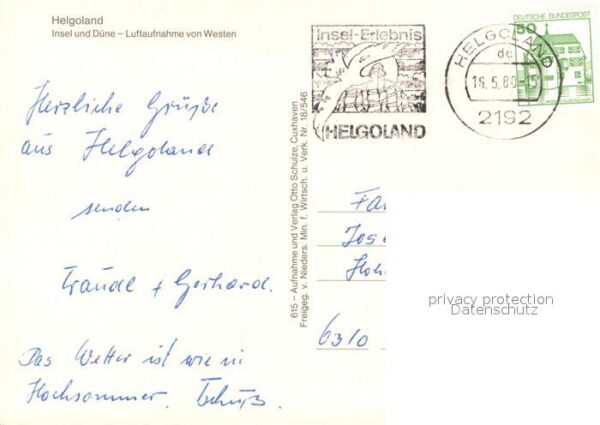 Helgoland
Insel und Düne – Luftaufnahme von Westen
Herzliche Grüße
aus Helgoland
senden
Traudl + Gerhard.
Das Wetter ist wie im
Hochsommer.
615 – Aufnahme und Verlag Otto Schulze, Cuxhaven
Freigeg. v. Nieders. Min. f. Wirtsch. u. Verk. Nr. 18/546
Insel-Erlebnis
HELGOLAND
HELGOLAND
de
16.5.80-15
2192
DEUTSCHE BUNDESPOST
50
Fa
Jose
Hoh
6310
privacy protection
Datenschutz